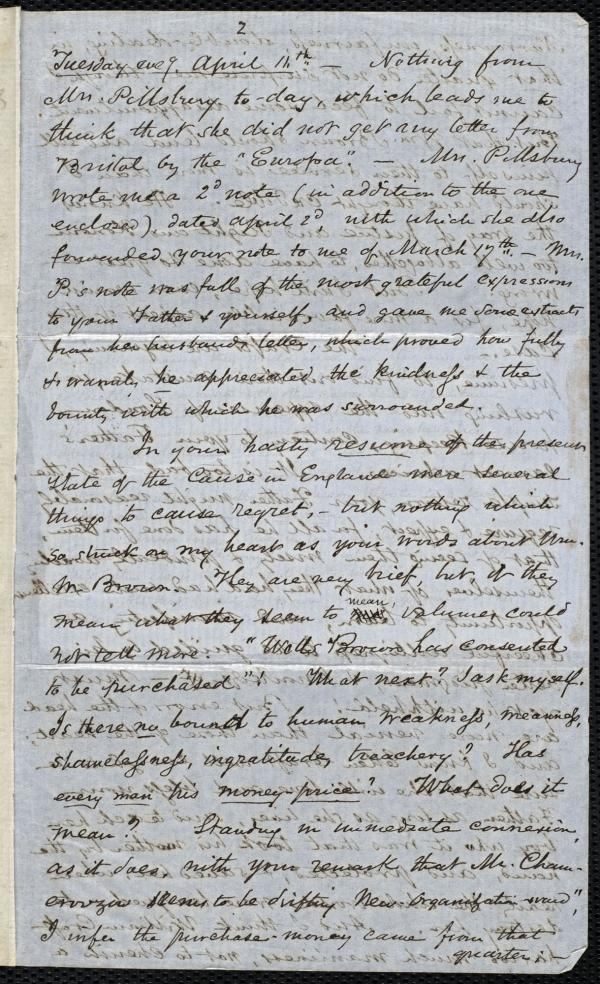 2
Tuesday eveg. April 11th. — Nothing from
Mrs. Pillsbury to-day, which leads me to
think that she did not get any letter from
Bristol by the "Europa". — Mrs. Pillsbury
wrote me a 2d note (in addition to the one
enclosed) dated April 2d with which she also
forwarded your note to me of March 17th. — Mrs.
P.'s note was full of the most grateful expressions
to your Father & yourself, and gave me some extracts
from her husband's letter, which proved how fully
& warmly he appreciated the kindness & the
bounty with which he was surrounded.
In your hasty resume of the present
state of the Cause in England were several
things to cause regret, – but nothing which
so struck on my heart as your words about Wm.
W. Brown. They are very brief, but, if they
mean what they seem to mean, volumes could
not tell more. "Wells Brown has consented
to be purchased"! What next? I ask myself.
Is there no bound to human weakness, meanness,
shamelessness, ingratitude, treachery? Has
every man his money-price? What does it
mean? Standing in immediate connexion,
as it does, with your remark that Mr. Cham-
erovzow seems to be drifting New-Organization-ward",
I infer the purchase-money came from that
quarter. –